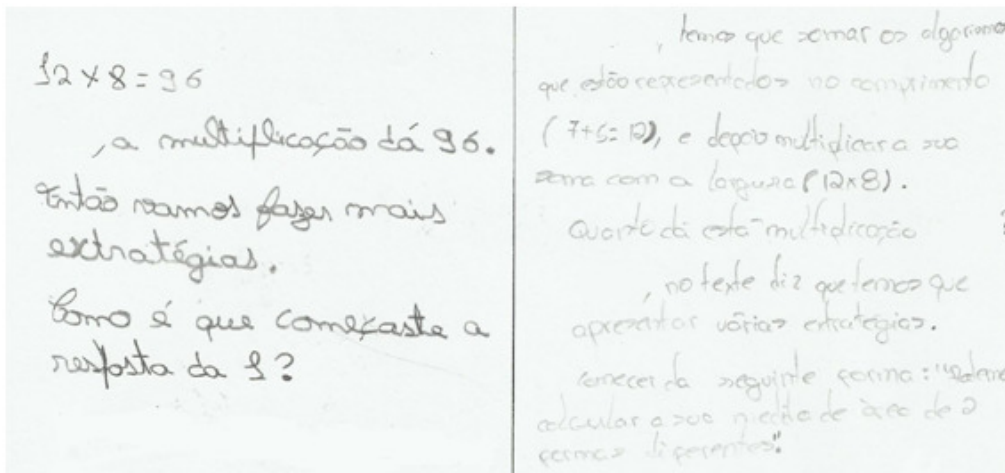 12 x 8 = 96
, a multiplicação dá 96.
Então vamos fazer mais
extratégias.
Como é que começaste a
resposta da 1?
, temos que somar os algorismos
que estão representados no comprimento
(7+5=12), e depois multiplicar a sua
soma com a largura (12x8).
Quanto dá esta multiplicação
, no texto diz que temos que
apresentar várias estratégias.
comecei da seguinte forma: "Podemos
calcular a sua medida de área de 2
formas diferentes".